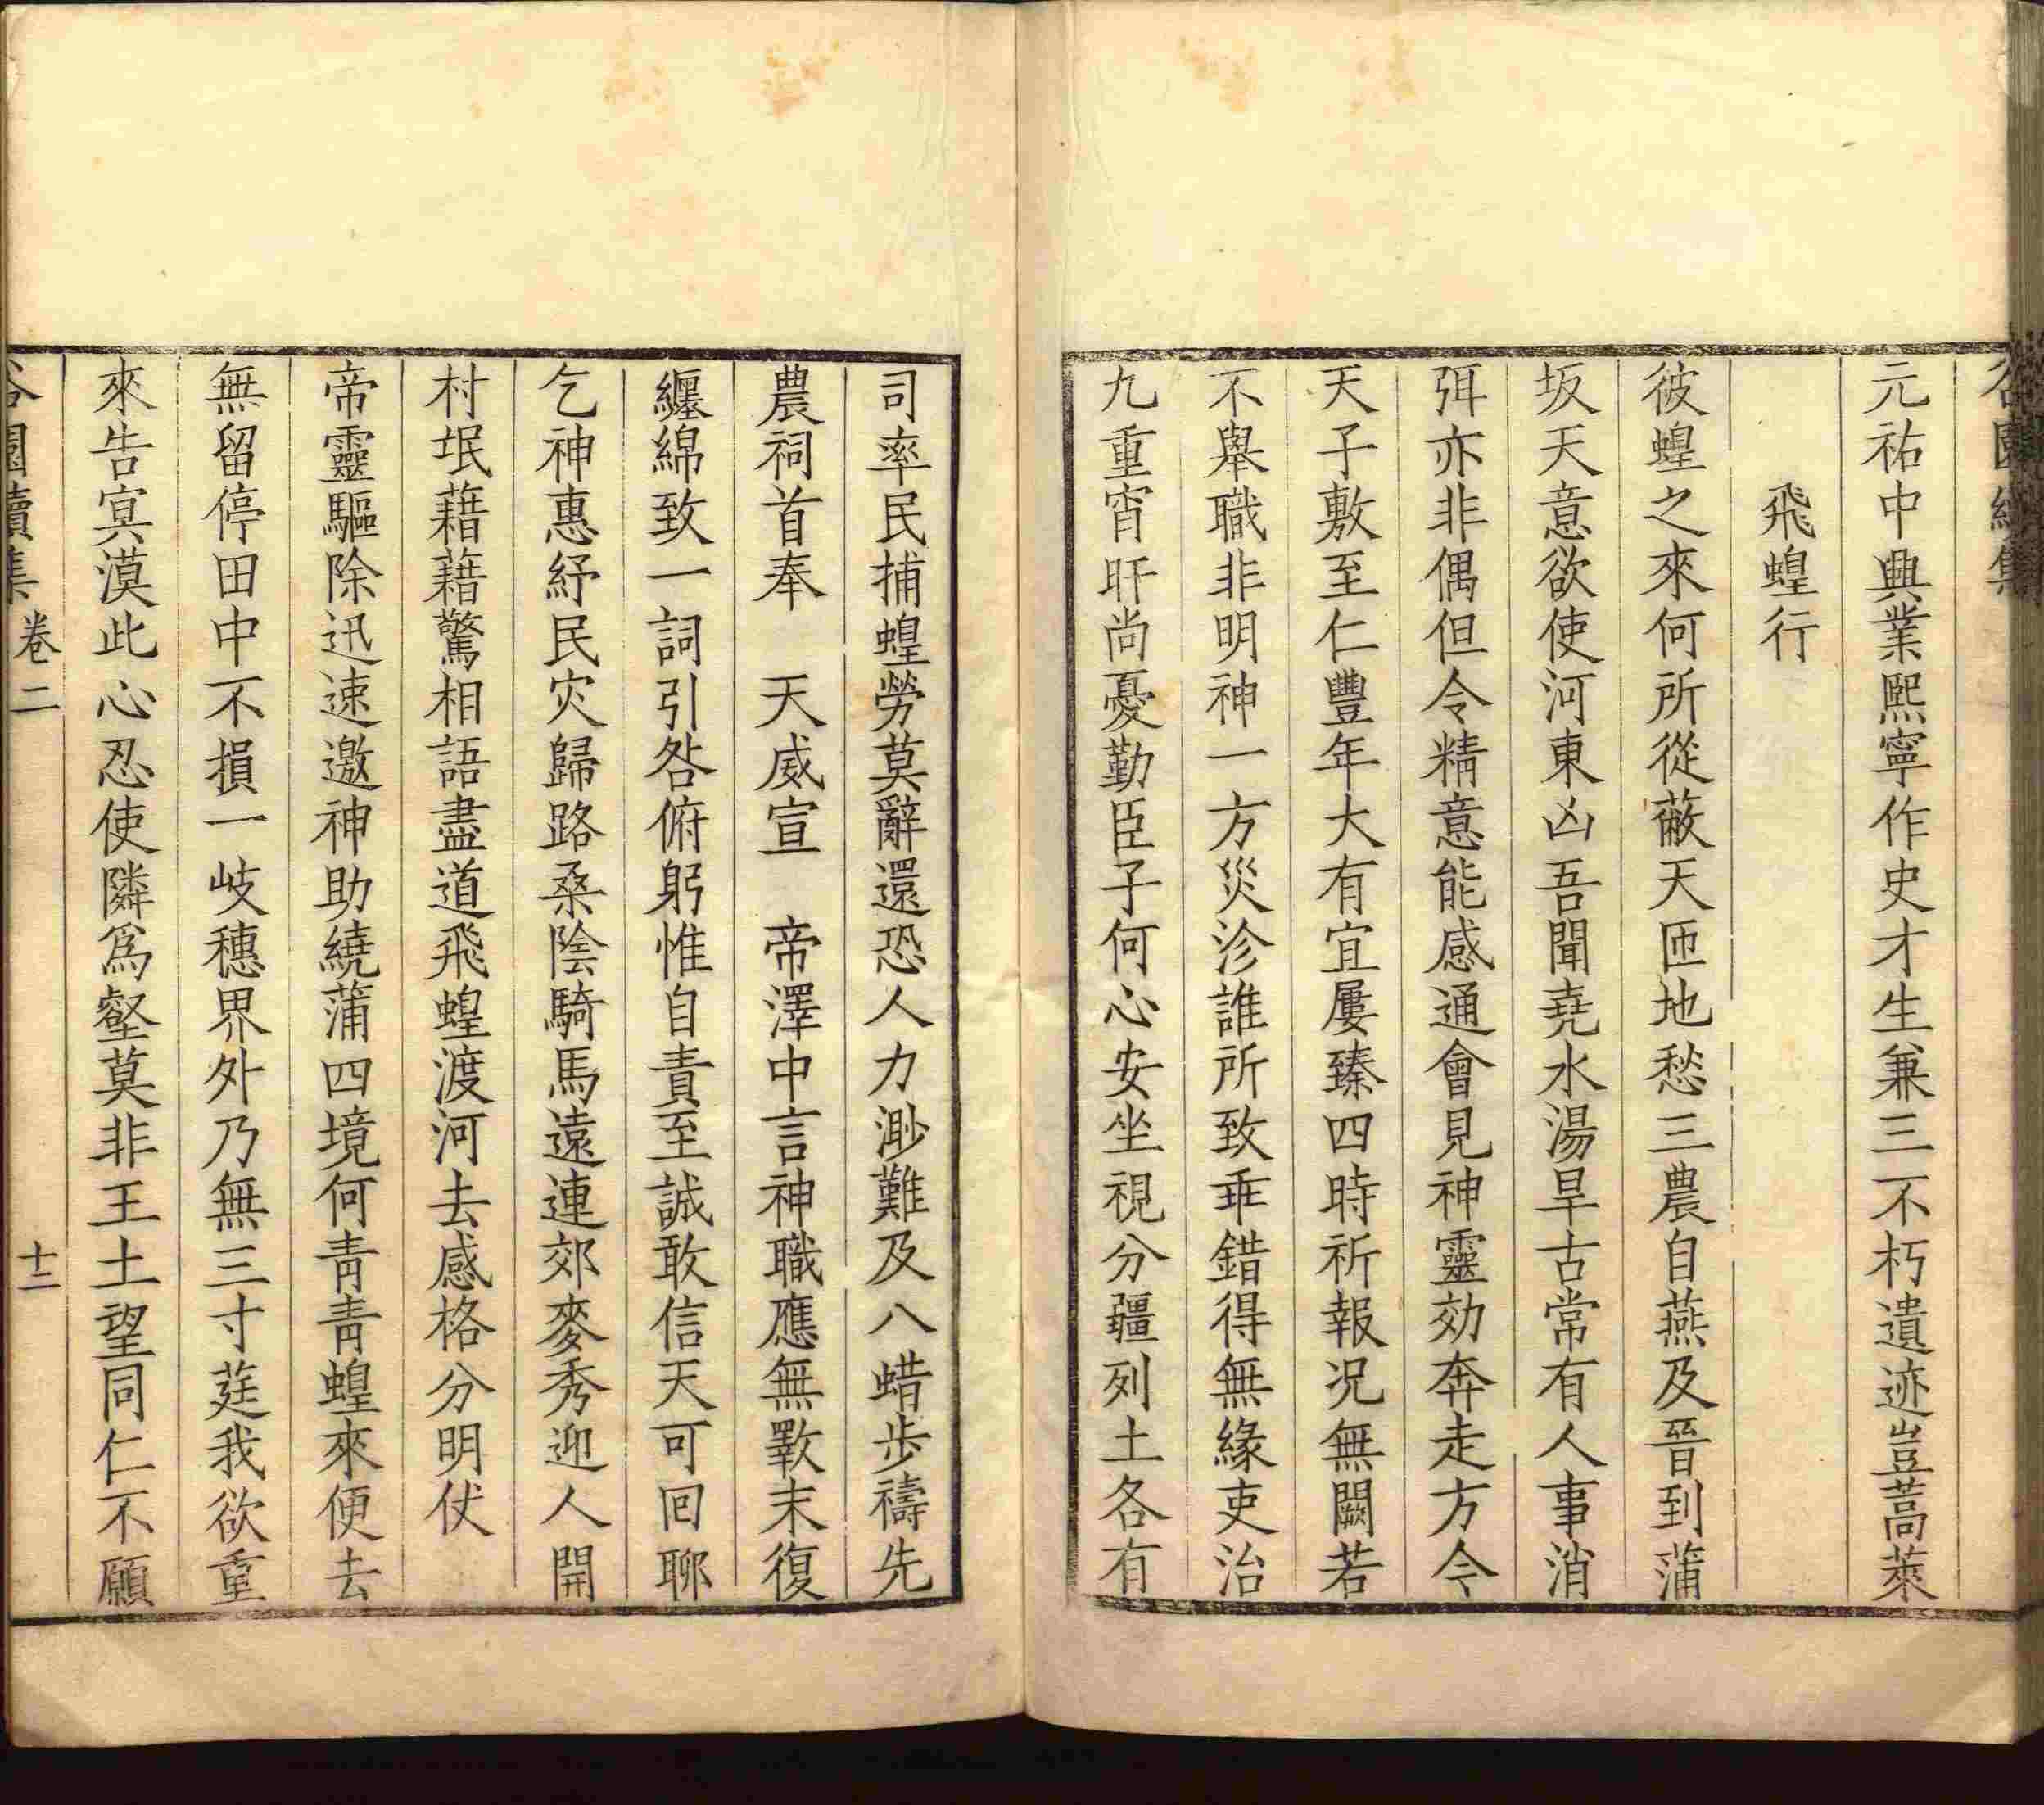 元祐中興業熙寧作史才生兼三不朽遺迹豈蒿萊
飛蝗行
彼蝗之來何所從蔽天匝地愁三農自燕及晉到蒲
坂天意欲使河東凶吾聞堯水湯旱古常有人事消
弭亦非偶但令精意能感通會見神靈効奔走方今
天子敷至仁豐年大有宜屢臻四時祈報况無闕若
不舉職非明神一方災沴誰所致乖錯得無緣吏治
九重宵旰尚憂勤臣子何心安坐視分疆列土各有
司率民捕蝗勞莫辭還恐人力渺難及八蜡步禱先
農祠首奉　天威宣　帝澤中言神職應無斁末復
纏綿致一詞引咎俯躬惟自責至誠敢信天可回聊
乞神惠紓民灾歸路桑陰騎馬遠連郊麥秀迎人開
村坻藉藉驚相語盡道飛蝗渡河去感格分明仗
帝靈驅除迅速邀神助繞蒲四境何青青蝗來便去
無留停田中不損一岐穗界外乃無三寸莛我欲重
來告冥漠此心忍使隣爲壑莫非王土望同仁不願
園續集
卷二
十二